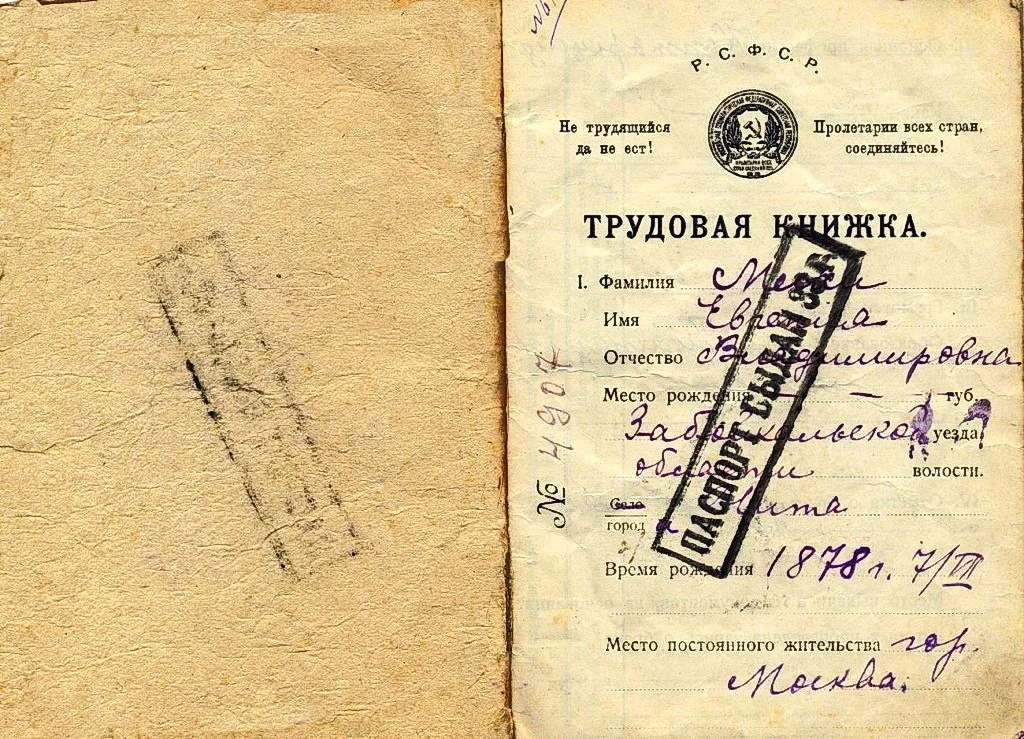 Р. С. Ф. С. Р.
Не трудящийся
да не ест!
Пролетарии всех стран,
соединяйтесь!
ТРУДОВАЯ КНИЖКА.
1. Фамилия
Имя Евгения
Отчество Владимировна
Место рождения — — — губ.
Забайкальской уезда,
области волости.
село
город Чита
Время рождения 1878 г. 7/III
Место постоянного жительства гор.
Москва.
№ 4907
ПАСПОРТ ВЫДАН